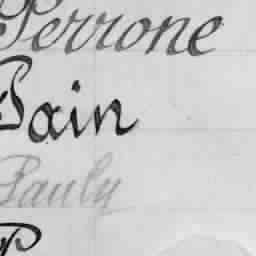 Perrone
Pain
Pauly
P